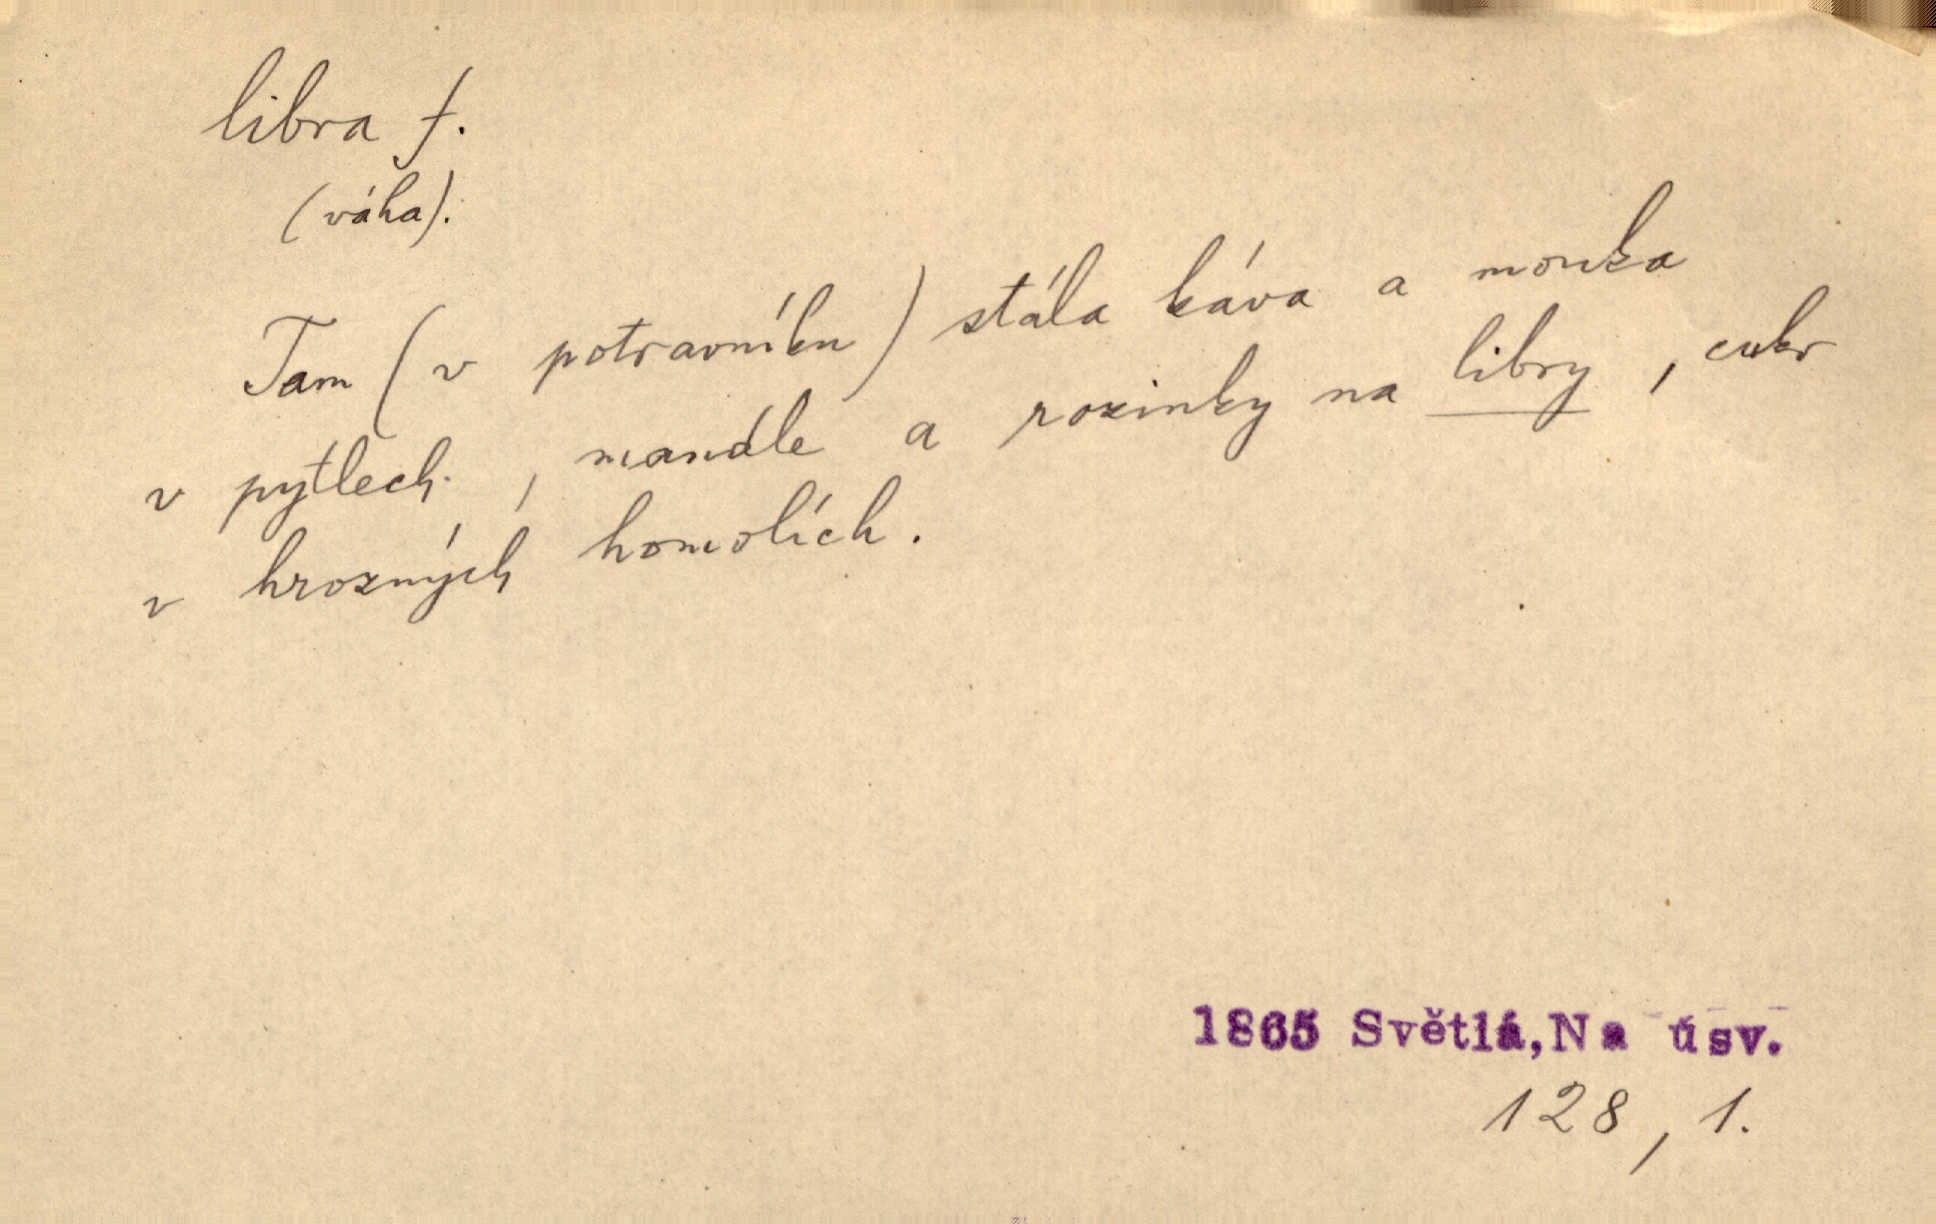 libra f.
(váha).
Tam (v potravníku) stála káva a mouka
v pytlech, mandle a rozinky na libry, cukr
v hrozných homolích.
1865 Světlá, Na úsv.
128, 1.